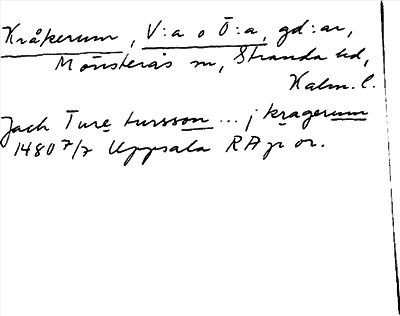 Kråkerum, V:a o Ö:a, gd:ar,
Mönsterås sn, Stranda hd,
Kalm. l.
Jach Ture tursson ... j kragerum
1480 7/7 Uppsala RA p or.